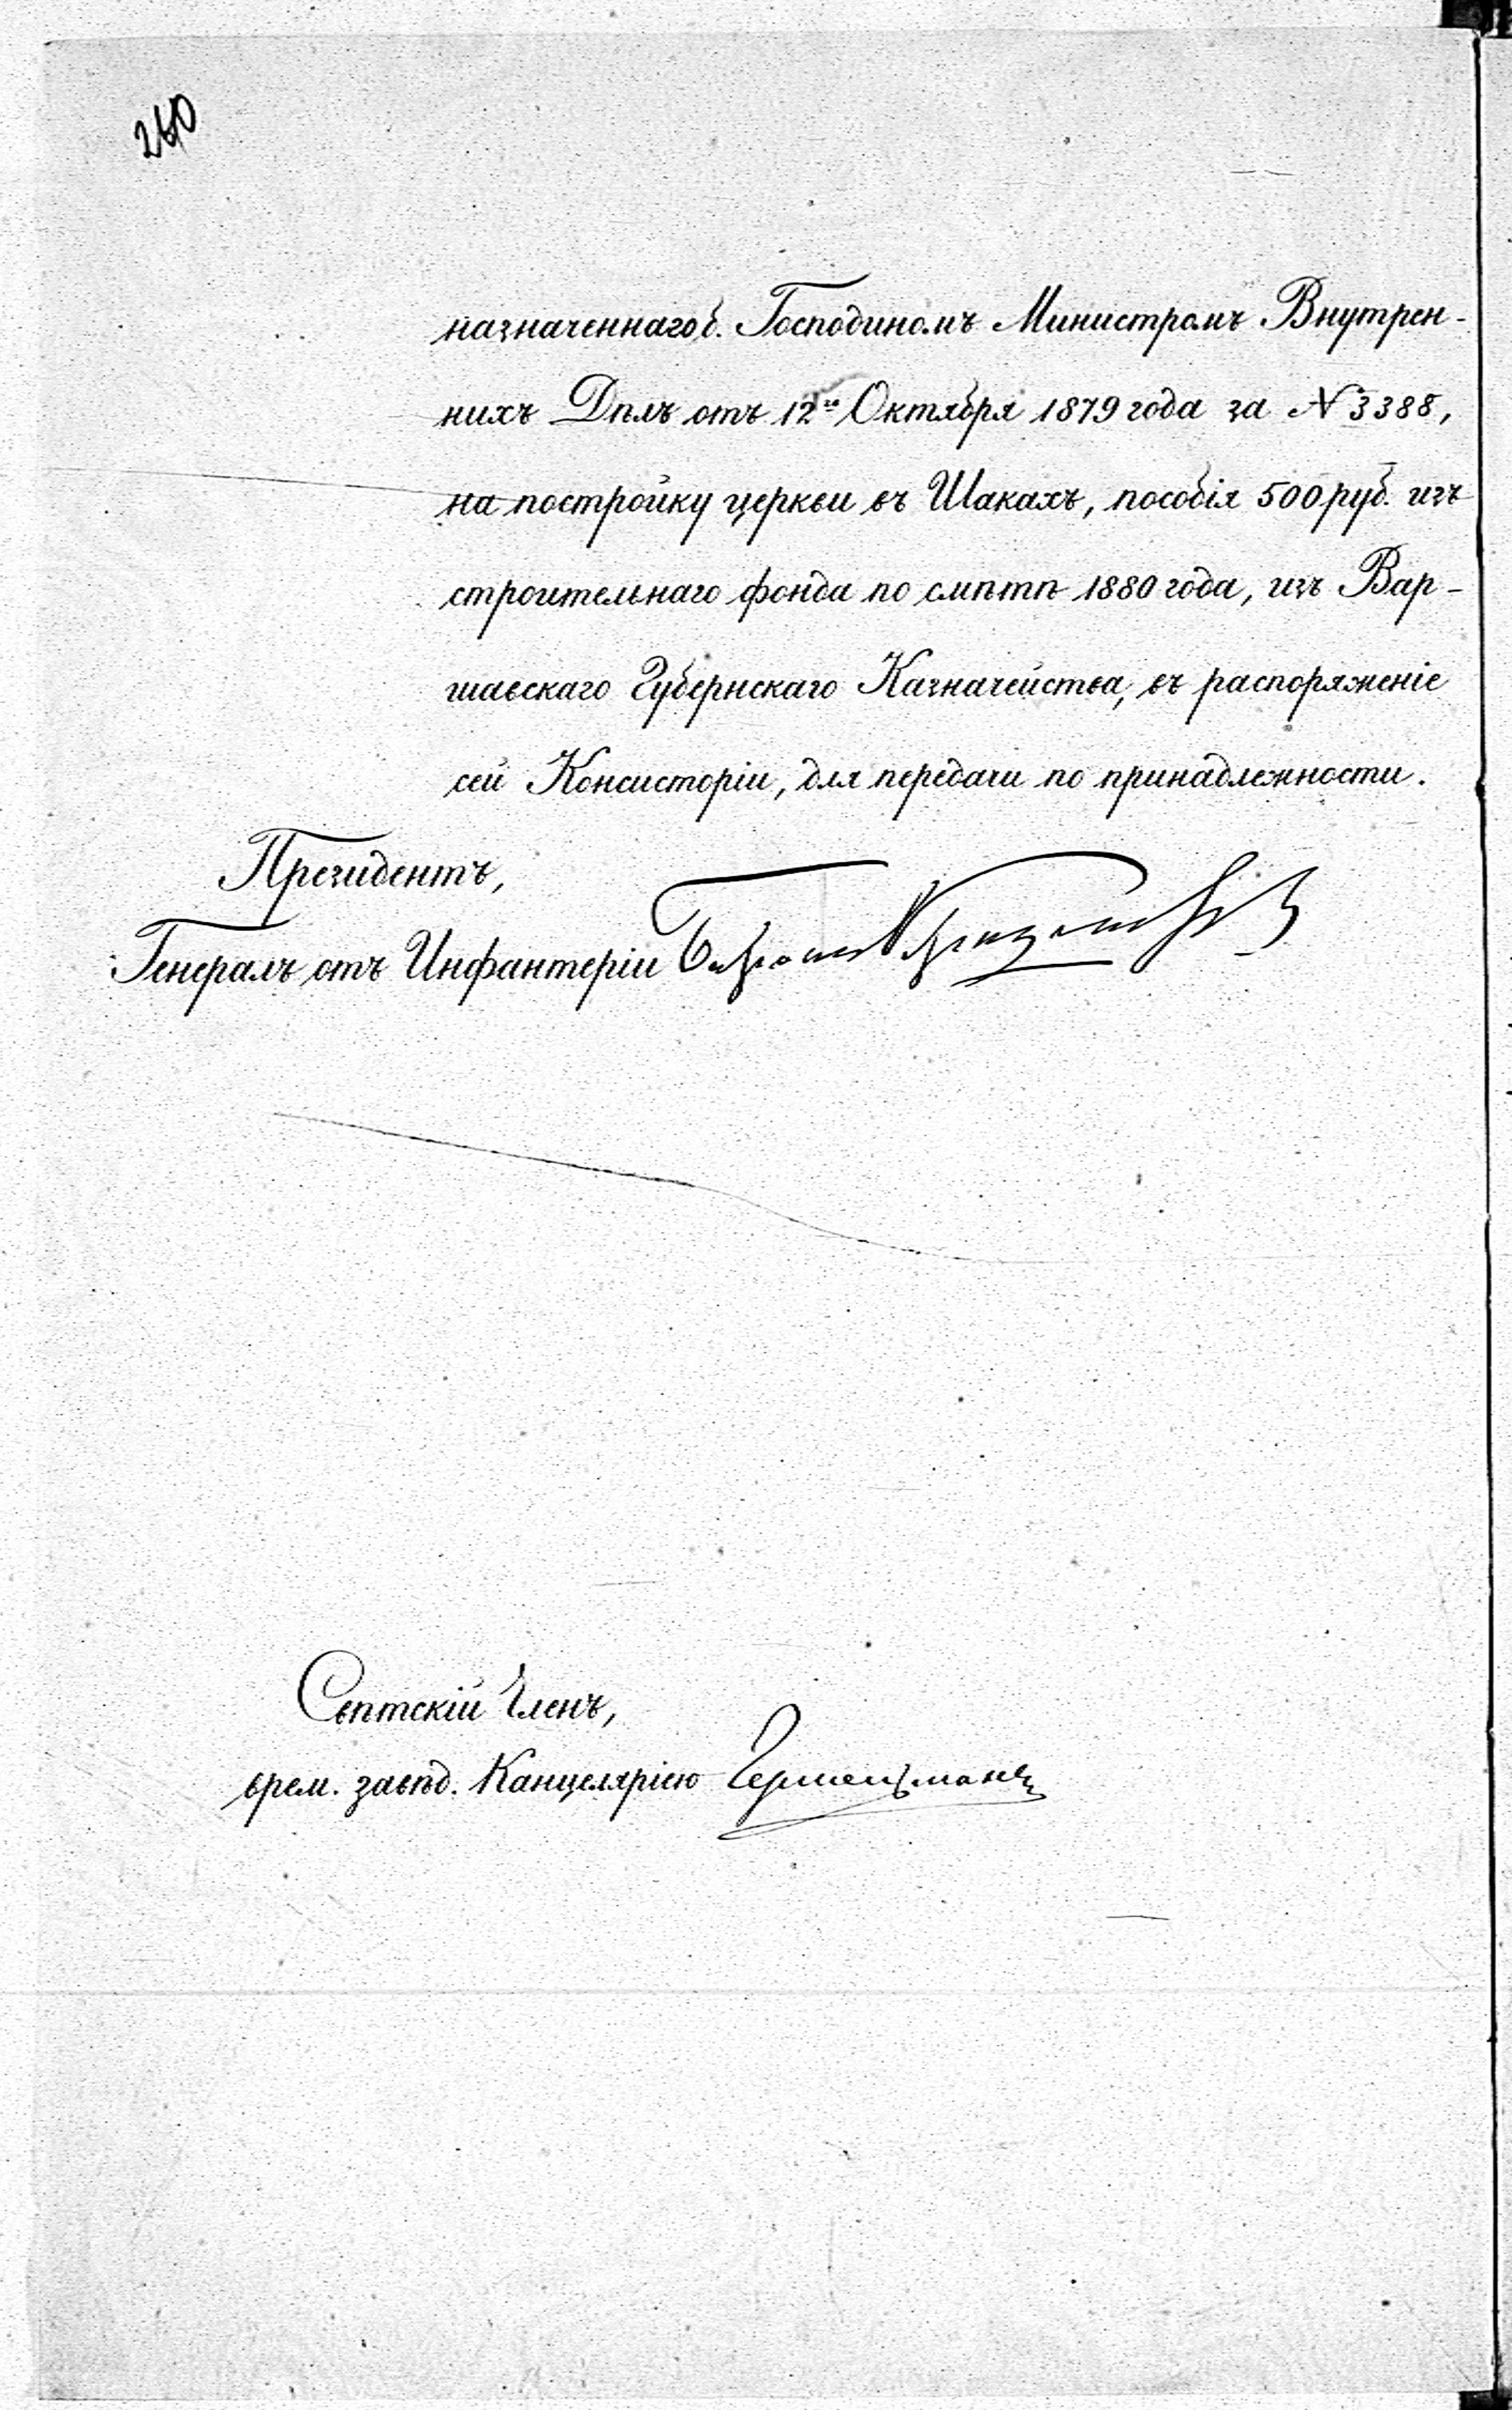 260
назначеннаго б. Господиномъ Министромъ Внутрен-
нихъ Дѣлъ отъ 12го Октября 1879 года за № 3388,
на постройку церкви въ Шакахъ, пособія 500 руб. изъ
строительнаго фонда по смѣтѣ 1880 года, изъ Вар-
шавскаго Губернскаго Казначейства, въ распоряженіе
сей Консисторіи, для передачи по принадлежности.
Президентъ,
Генералъ отъ Инфантеріи Баронъ
Свѣтскій Членъ,
врем. завѣд. Канцеляріею